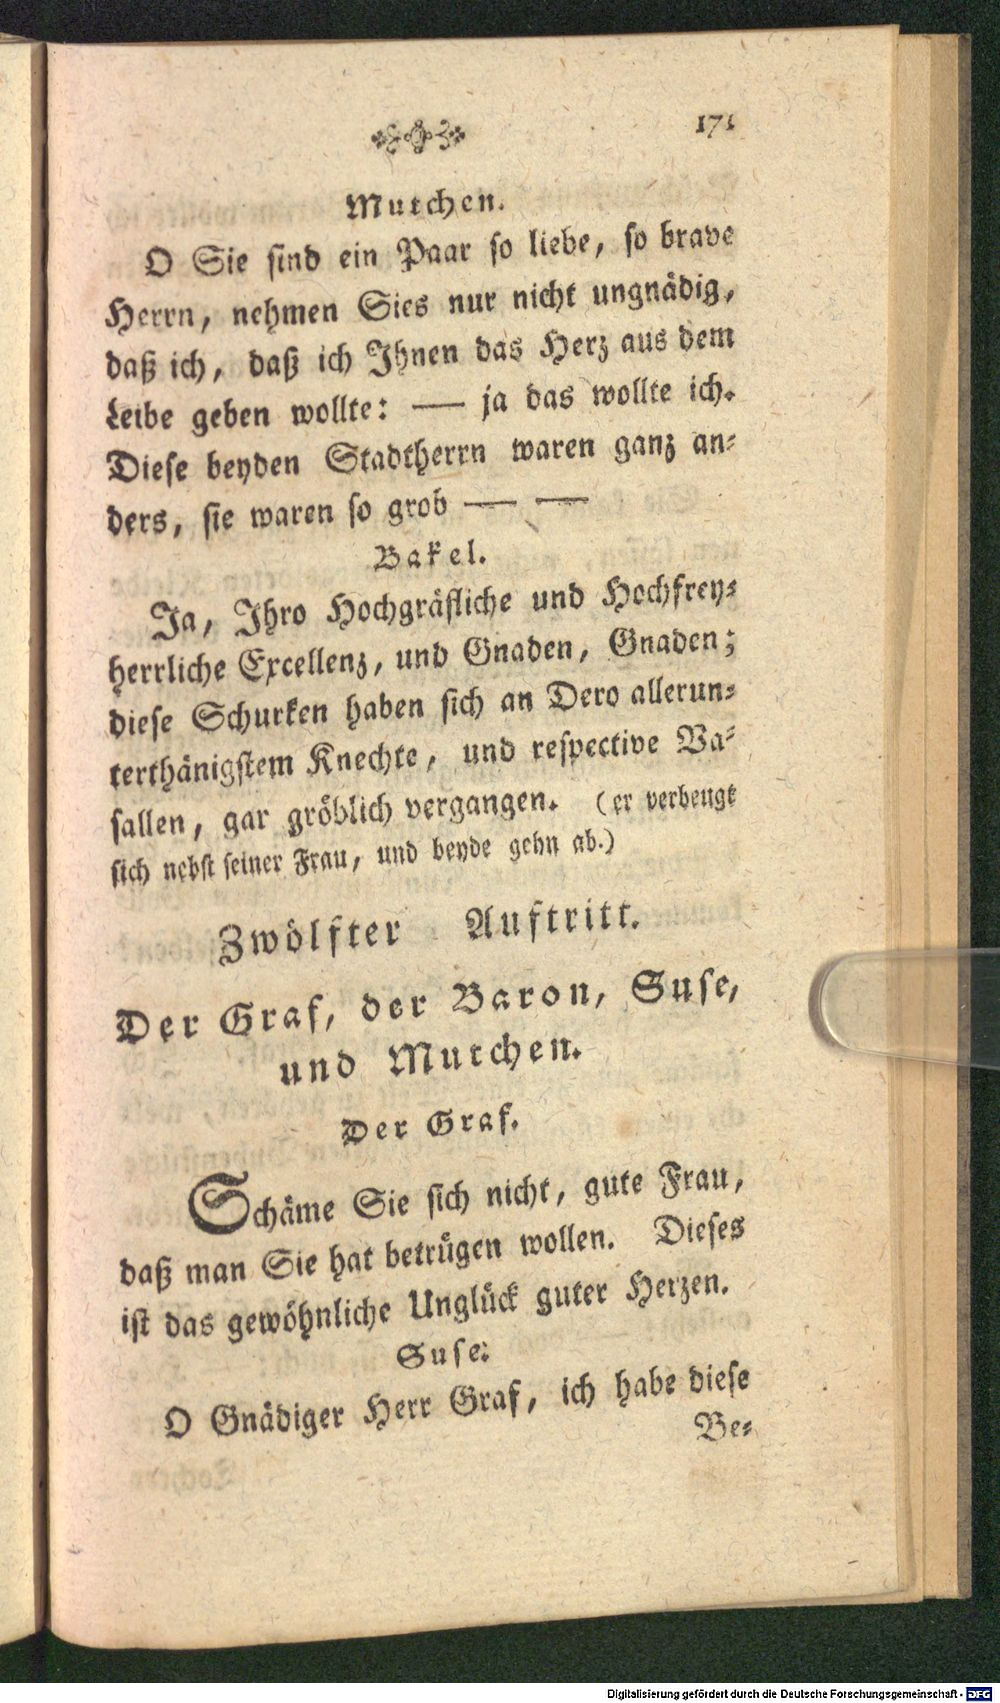 171
Mutchen.
O Sie sind ein Paar so liebe, so brave
Herrn, nehmen Sies nur nicht ungnädig,
daß ich, daß ich Ihnen das Herz aus dem
Leibe geben wollte: — ja das wollte ich.
Diese beyden Stadtherrn waren ganz an-
ders, sie waren so grob — —
Bakel.
Ja, Ihro Hochgräfliche und Hochfrey-
herrliche Excellenz, und Gnaden, Gnaden;
diese Schurken haben sich an Dero allerun-
terthänigstem Knechte, und respective Va-
sallen, gar gröblich vergangen. (er verbeugt
sich nebst seiner Frau, und beyde gehn ab.)
Zwölfter Auftritt.
Der Graf, der Baron, Suse,
und Mutchen.
Der Graf.
Schäme Sie sich nicht, gute Frau,
daß man Sie hat betrügen wollen. Dieses
ist das gewöhnliche Unglück guter Herzen.
Suse:
O Gnädiger Herr Graf, ich habe diese
Be-
Digitalisierung gefördert durch die Deutsche Forschungsgemeinschaft - DFG